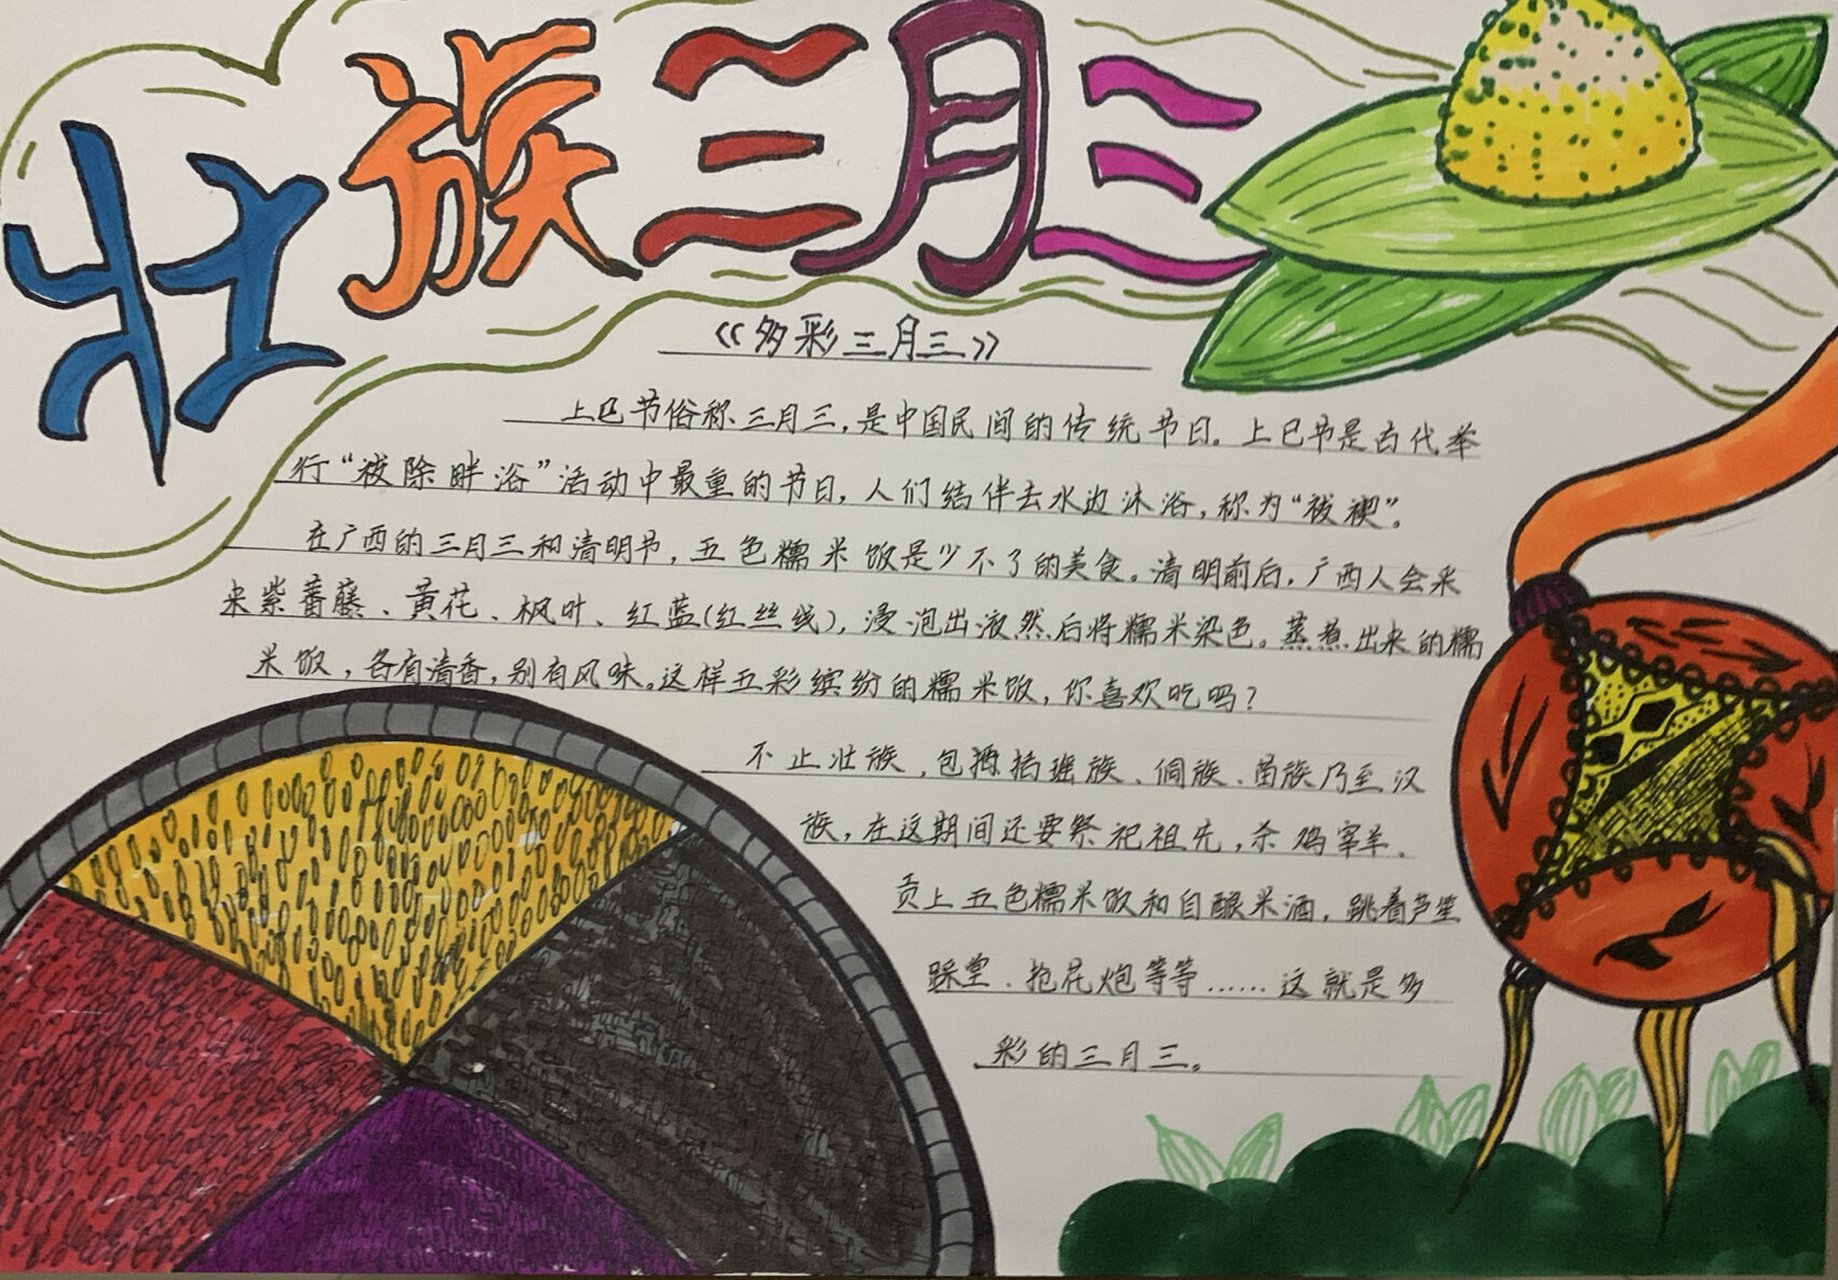 壮族三月三
《多彩三月三》
上巳节俗称三月三，是中国民间的传统节日。上巳节是古代举
行“祓除畔浴”活动中最重的节日，人们结伴去水边沐浴，称为“祓禊”。
在广西的三月三和清明节，五色糯米饭是少不了的美食。清明前后，广西人会采
来紫蕃藤、黄花、枫叶、红蓝(红丝线)，浸泡出液然后将糯米染色。蒸煮出来的糯
米饭，各有清香，别有风味。这样五彩缤纷的糯米饭，你喜欢吃吗？
不止壮族，包括瑶族、侗族、苗族乃至汉
族，在这期间还要祭祀祖先，杀鸡宰羊、
贡上五色糯米饭和自酿米酒，跳着芦笙
踩堂、抢花炮等等……这就是多
彩的三月三。